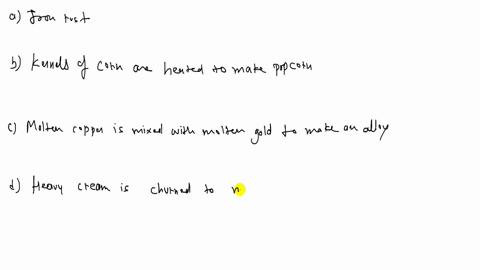 a) Iron rust
b) Kernels of corn are heated to make popcorn
c) Molten copper is mixed with molten gold to make an alloy
d) Heavy cream is churned to